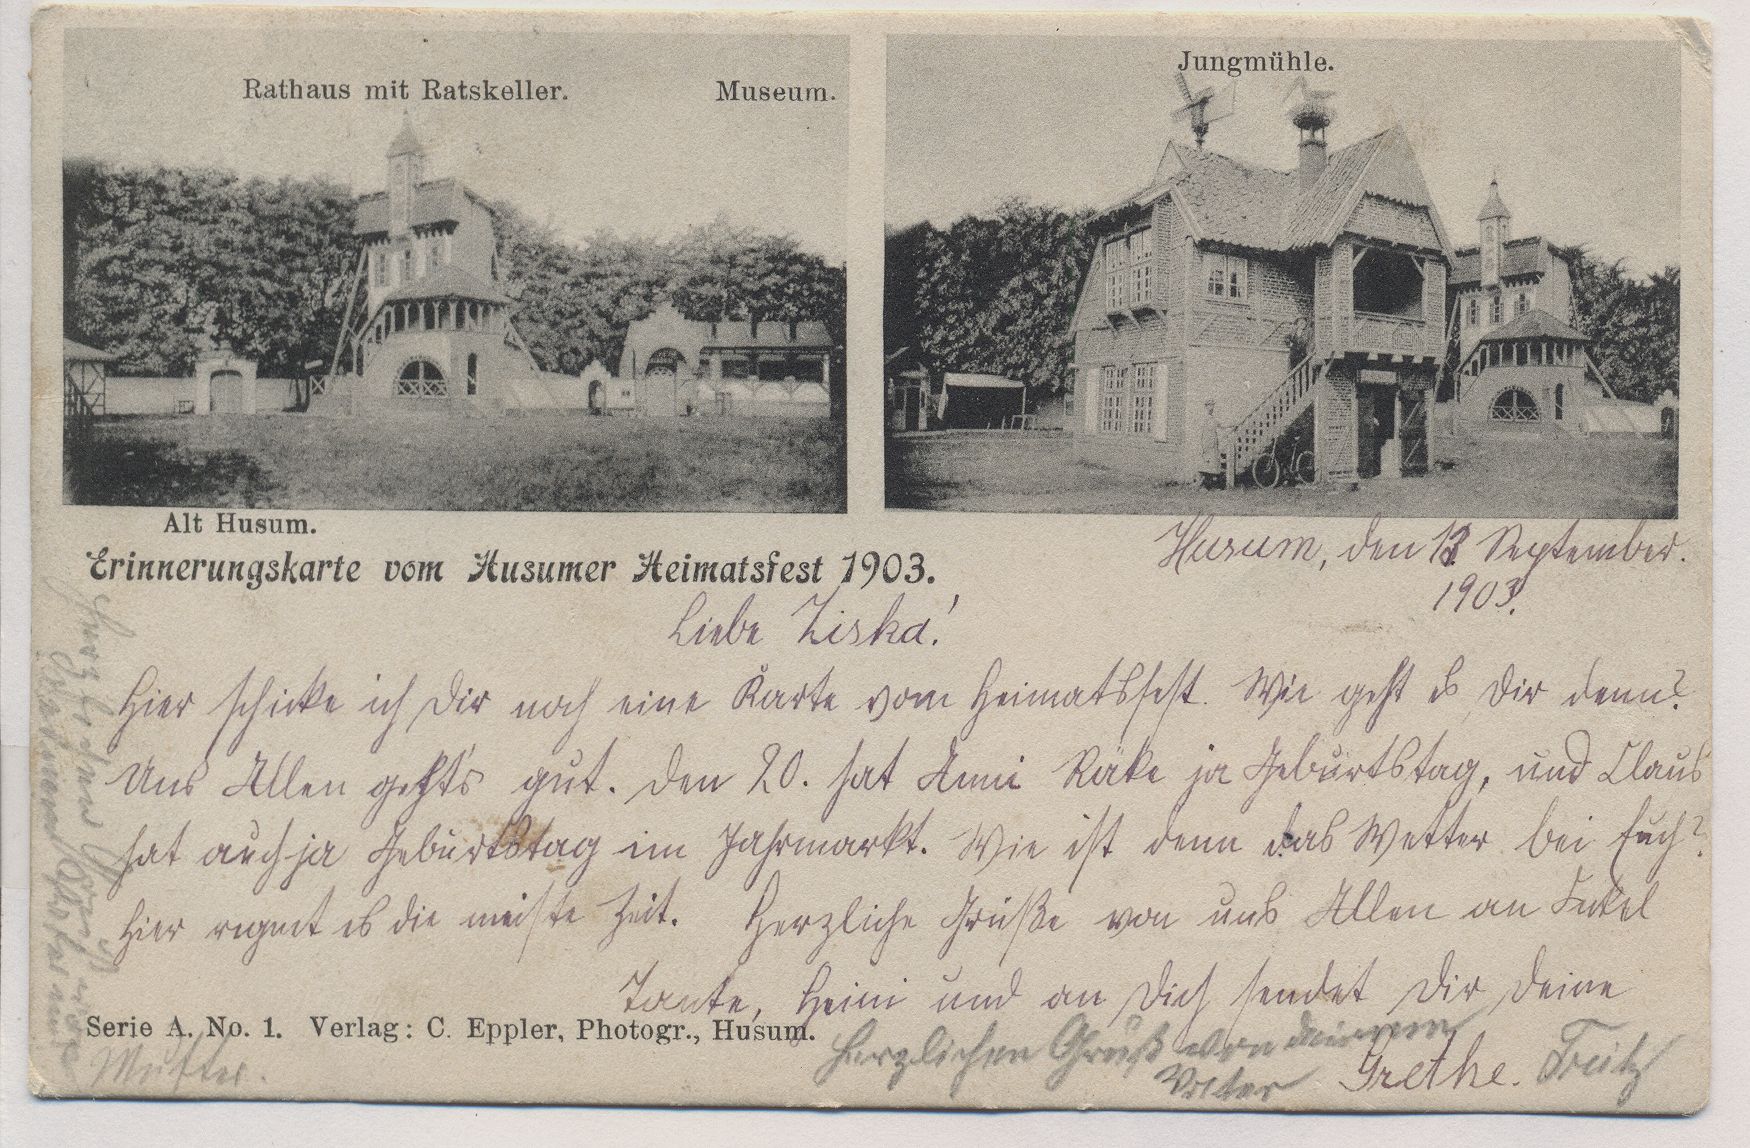 Rathaus mit Ratskeller. Museum.
Jungmühle.
Alt Husum.
Erinnerungskarte vom Husumer Heimatsfest 1903.
Husum, den 13 September.
1903.
Liebe Ziska!
Hier schicke ich Dir noch eine Karte vom Heimatsfest. Wie geht es Dir denn?
Uns Allen geht's gut. Den 20. hat Anni Räke ja Geburtstag, und Claus
hat auch ja Geburtstag im Jahrmarkt. Wie ist denn das Wetter bei Euch?
Hier regnet es die meiste Zeit. Herzliche Grüße von uns Allen an Onkel
Tante, Heini und an Dich sendet Dir Deine
Grethe.
Serie A. No. 1. Verlag: C. Eppler, Photogr., Husum.
Herzlichen Gruß von deinem
Vater
Fritz
Mutter.